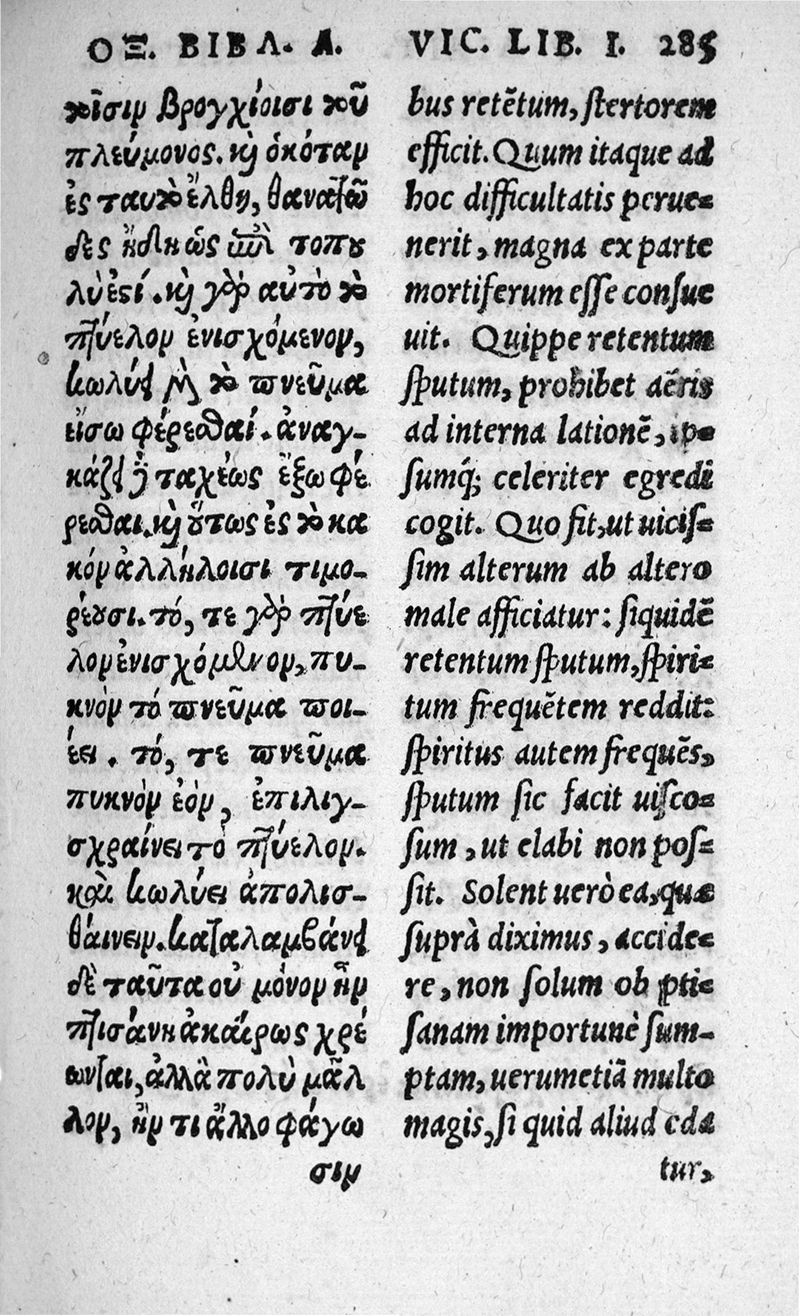 ΟΞ. ΒΙΒΛ. Α.
τοῖσιν βρογχίοισι τοῦ
πλεύμονος. καὶ ὁκόταν
ἐς ταυτὸ ἔλθῃ, θανατῶ
δες ἤδη ὡς ἐπὶ τοπου
λὺ ἐστί. καὶ γὰρ αὐτὸ τὸ
πτύελον ἐνισχόμενον,
κωλύει μὲν τὸ πνεῦμα
εἴσω φέρεσθαι. ἀναγ-
κάζει δὲ ταχέως ἔξω φέ
ρεσθαι. καὶ οὕτως ἐς τὸ κα
κὸν ἀλλήλοισι τιμο-
ρέουσι. τό, τε γὰρ πτύε
λον ἐνισχόμενον, πυ-
κνὸν τὸ πνεῦμα ποι-
έει. τό, τε πνεῦμα
πυκνὸν ἐὸν, ἐπιλιγ-
σχραίνει τὸ πτύελον.
καὶ κωλύει ἀπολισ-
θάινειν. καταλαμβάνει
δὲ ταῦτα οὐ μόνον ἢν
πτισάνη ἀκαίρως χρέ
ωνται, ἀλλὰ πολὺ μᾶλ
λον, ἤν τι ἄλλο φάγω
σιν
VIC. LIB. I. 285
bus retētum, ſtertorem
efficit. Quum itaque ad
hoc difficultatis perue-
nerit, magna ex parte
mortiferum eſſe conſue
uit. Quippe retentum
ſputum, prohibet aëris
ad interna lationē, ip-
ſumq́; celeriter egredi
cogit. Quo fit, ut uiciſ-
ſim alterum ab altero
male afficiatur: ſiquidē
retentum ſputum, ſpiri-
tum frequētem reddit:
ſpiritus autem frequēs,
ſputum ſic facit uiſco-
ſum, ut elabi non poſ-
ſit. Solent uerò ea, quæ
ſuprà diximus, accide-
re, non ſolum ob pti-
ſanam importunè ſum-
ptam, uerumetiā multo
magis, ſi quid aliud eda
tur,